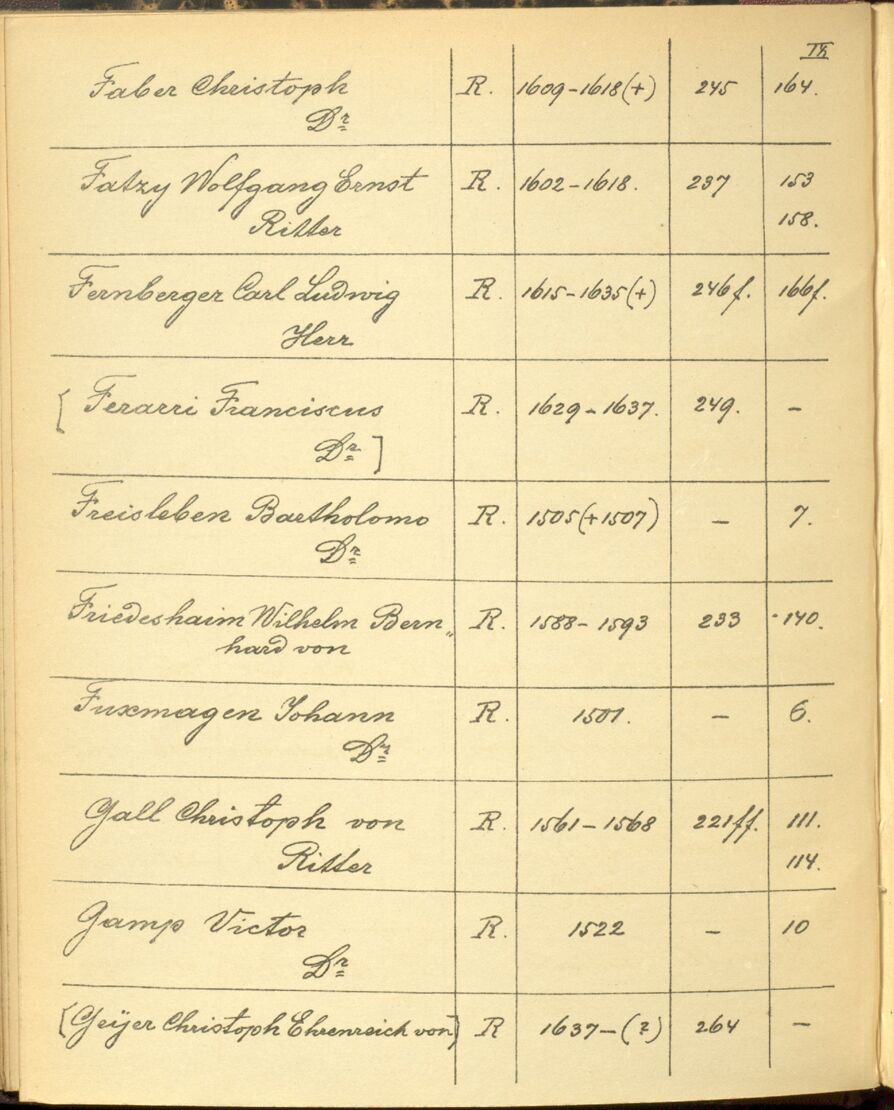 IX
Faber Christoph R. 1609-1618(+) 245 164.
Dr
Fatzy Wolfgang Ernst R. 1602-1618. 237 153
Ritter 158.
Fernberger Carl Ludwig R. 1615-1635(+) 246f. 166f.
Herr
[Ferarri Franciscus R. 1629-1637. 249. -
Dr]
Freisleben Bartholomo R. 1505(+1507) - 7.
Dr
Friedeshaim Wilhelm Bern„ R. 1588-1593 233 140.
hard von
Fuxmagen Johann R. 1501. - 6.
Dr
Gall Christoph von R. 1561-1568 221ff. 111.
Ritter 114.
Gamp Victor R. 1522 - 10
Dr
[Geijer Christoph Ehrenreich von] R 1637-(?) 264 -